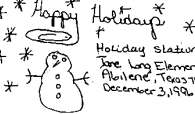 Happy Holidays
Holiday Station
Jane Long Elemen
Abilene, Texas 7
December 3, 1996